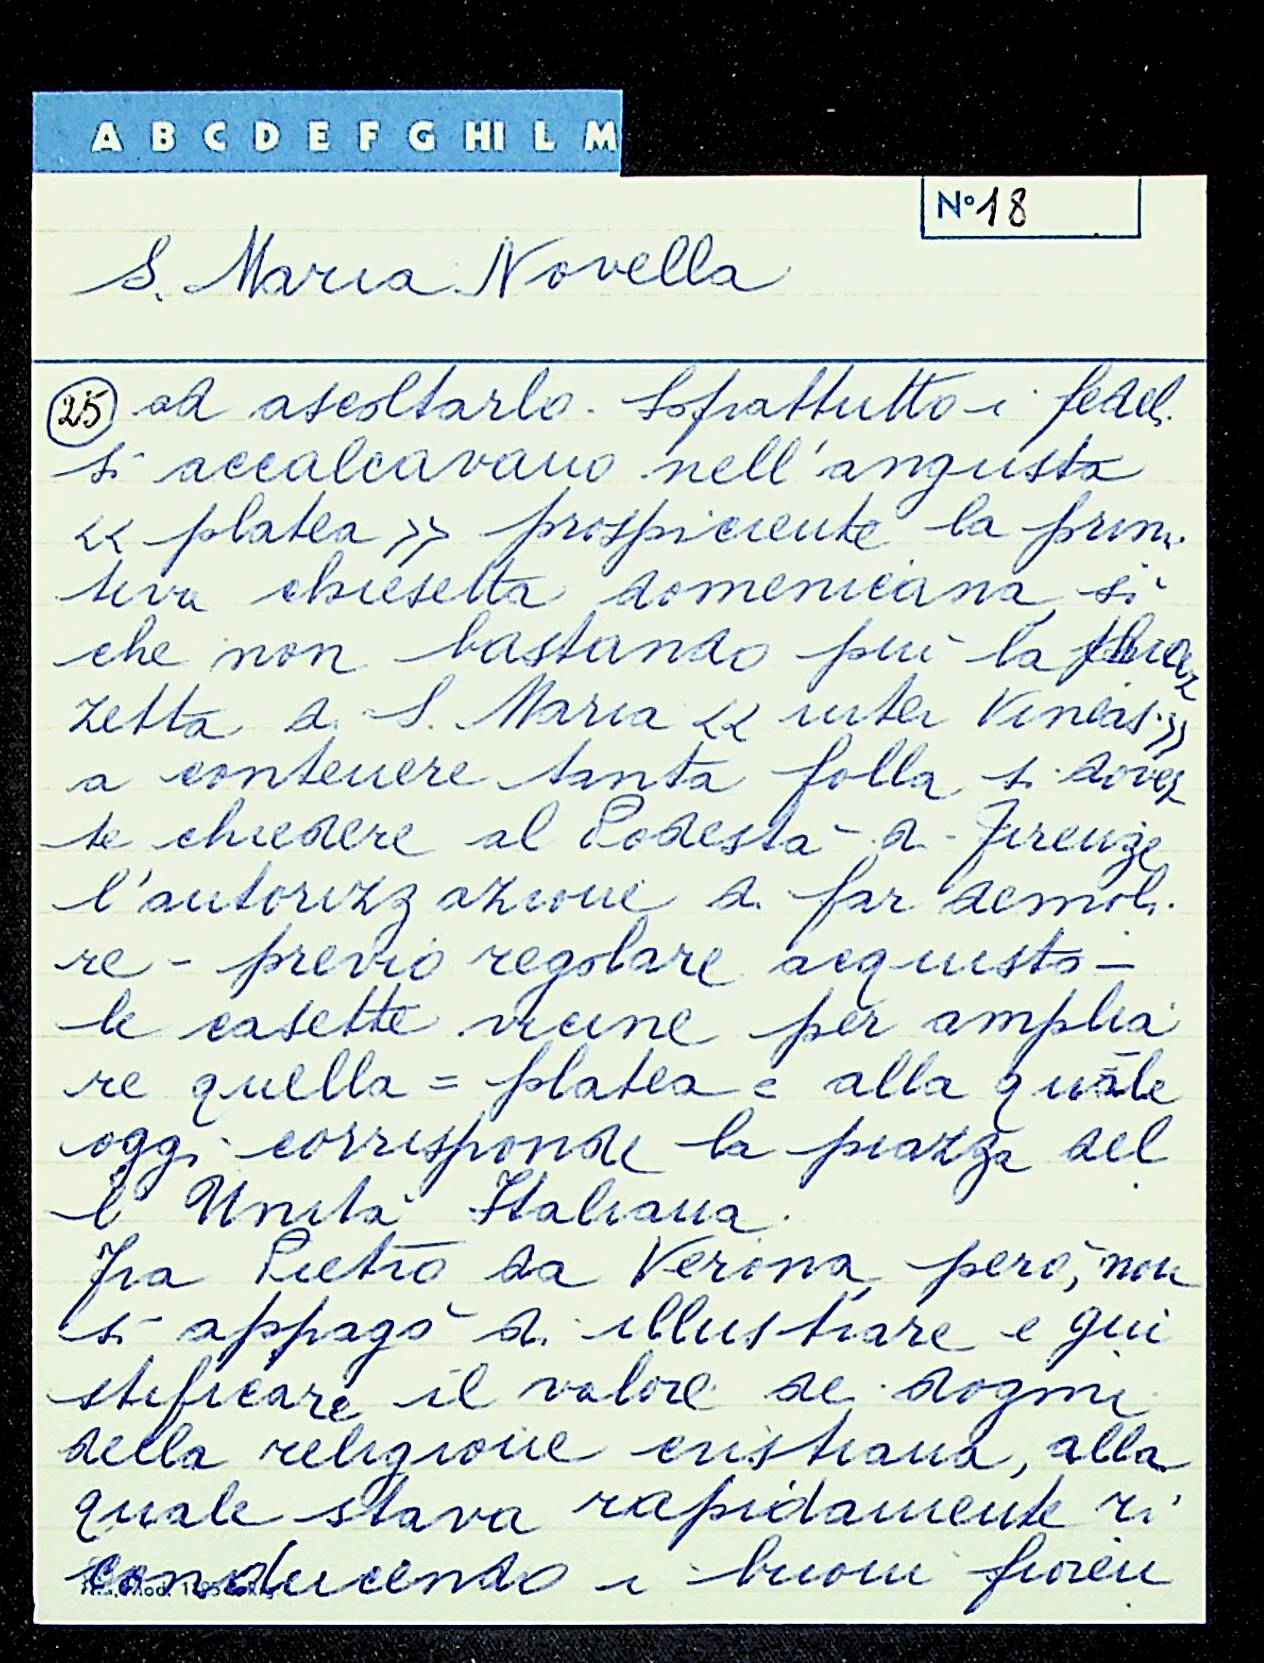 A B C D E F G HI L M
N° 18
S. Maria Novella
25 ad ascoltarlo. Soprattutto i fedeli
si accalcavano nell'angusta
« platea » prospiciente la primi
tiva chiesetta domenicana, sì
che non bastando più la piaz
zetta di S. Maria « inter Vineas »
a contenere tanta folla, si dovet
te chiedere al Podestà di Firenze
l'autorizzazione di far demoli
re - previo regolare acquisto -
le casette vicine per amplia
re quella = platea = alla quale
oggi corrisponde la piazza del
l'Unità Italiana.
Fra Pietro da Verona, però, non
si appagò di illustrare e giu
stificare il valore dei dogmi
della religione cristiana, alla
quale stava rapidamente ri
conducendo i buoni fioren